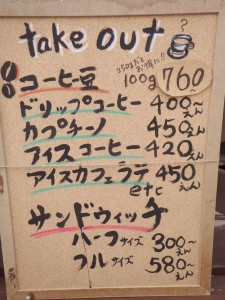 take out
250gだとお得に!!
コーヒー豆 100g 760~
ドリップコーヒー 400~えん
カプチーノ 450えん
アイスコーヒー 420えん
アイスカフェラテ 450えん
etc
サンドウィッチ
ハーフサイズ 300~えん
フルサイズ 580~えん